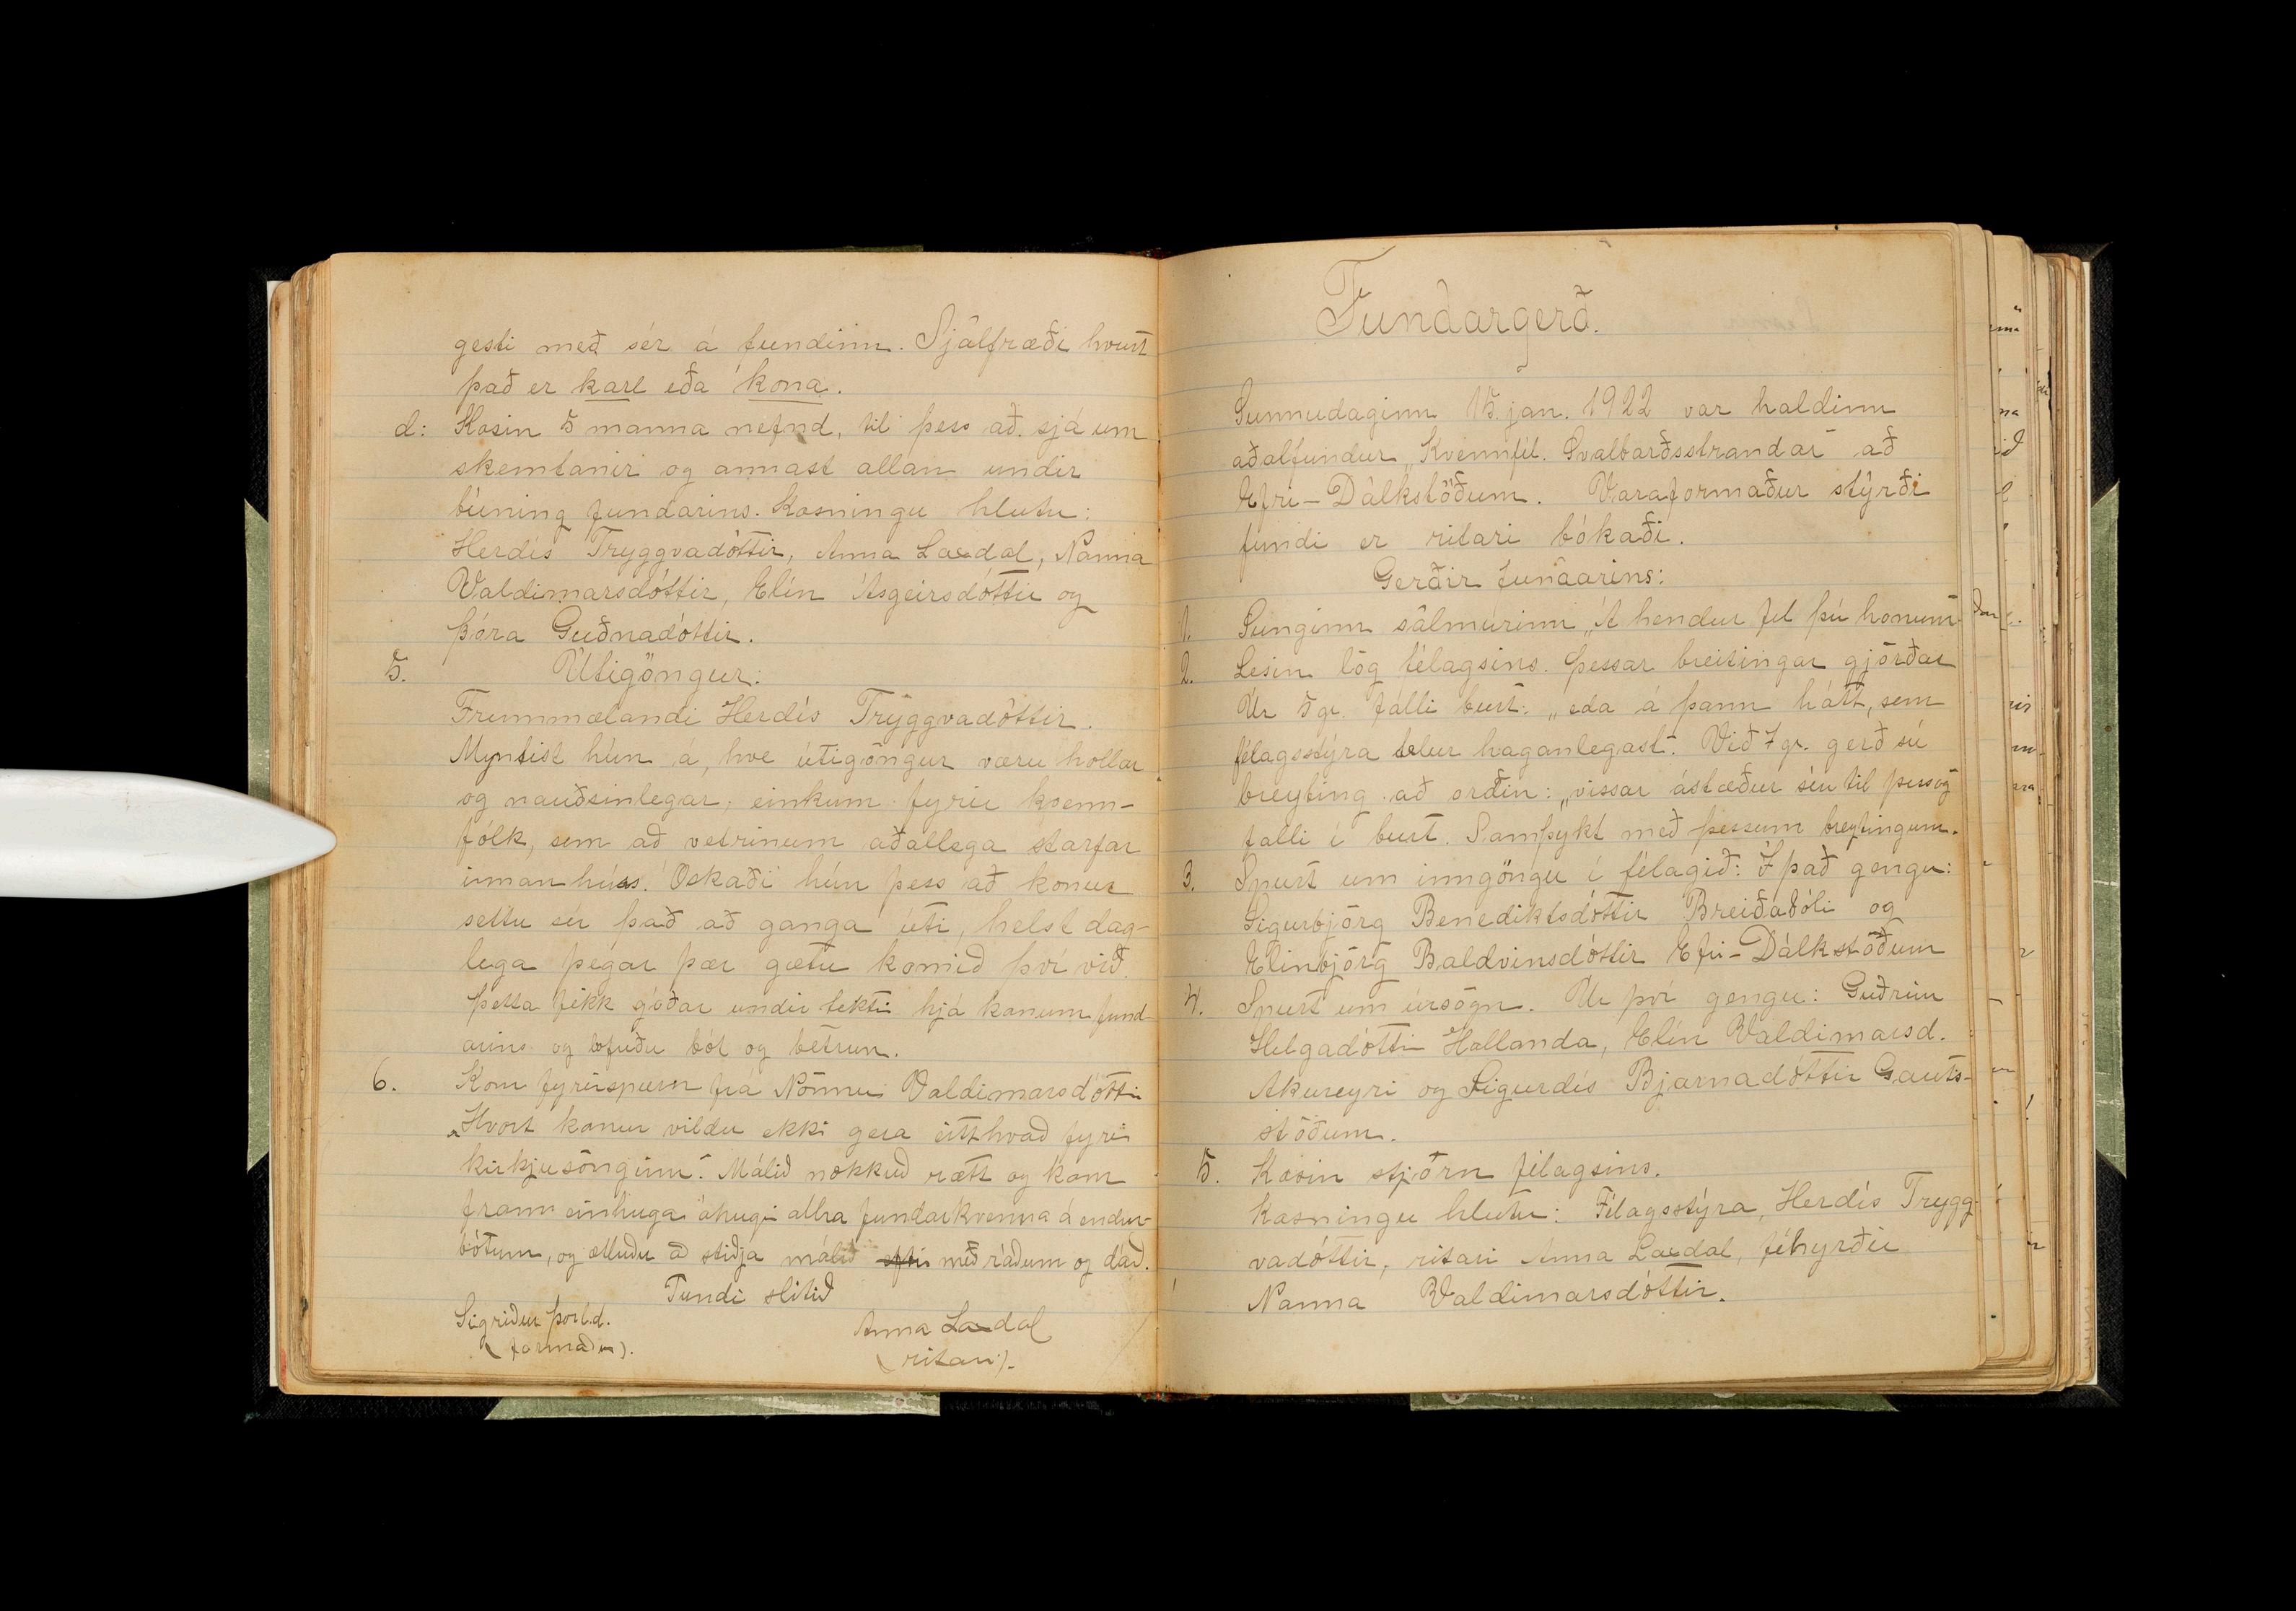 gesti með sér á fundinn. Sjálfræði hvurt
það er karl eða kona.
d: Kosin 5 manna nefnd, til þess að sjá um
skemtanir og annast allan undir
búning fundarins. Kosningu hlutu:
Herdís Tryggvadóttir, Anna Laxdal, Nanna
Valdimarsdóttir, Elín Ásgeirsdóttir og
Þóra Guðnadóttir.
5. Útigöngur:
Frummælandi Herdís Tryggvadóttir.
Myntist hún á, hve útigöngur væru hollar
og nauðsinlegar, einkum fyrir kvenn-
fólk, sem að vetrinum aðallega starfar
innanhúss. Óskaði hún þess að konur
settu sér það að ganga úti, helst dag-
lega þegar þær gætu komið því við.
Þetta fékk góðar undir tektir hjá konum fund-
arins og lofuðu bót og betrun.
6. Kom fyrirspurn frá Nönnu Valdimarsdóttir
„Hvort konur vildu ekki gera eitthvað fyrir
kirkjusönginn". Málið nokkuð rætt og kom
fram einhuga áhugi allra fundarkvenna á endur-
bótum, og ætluðu að stiðja málið eftir með ráðum og dáð.
Fundi slitið
Sigríður Þorl.d. Anna Laxdal
(formaður). (ritari).
Fundargerð.
Sunnudaginn 15. jan. 1922 var haldinn
aðalfundur „Kvennfél. Svalbarðsstrandar" að
Efri-Dálkstöðum. Varaformaður stýrði
fundi er ritari bókaði.
Gerðir fundarins:
1. Sunginn sálmurinn „Á hendur fel þú honum"
2. Lesin lög félagsins. Þessar breitingar gjörðar
Úr 5 gr. falli burt: „eða á þann hátt, sem
félagsstýra telur haganlegast". Við 7 gr. gerð sú
breyting að orðin: „vissar ástæður séu til þess og
falli í burt. Samþykt með þessum breytingum.
3. Spurt um inngöngu í félagið: Í það gengu:
Sigurbjörg Benediktsdóttir Breiðabóli og
Elinbjörg Baldvinsdóttir Efri-Dálkstöðum
4. Spurt um úrsögn. Úr því gengu: Guðrún
Helgadóttir Hallanda, Elín Valdimarsd.
Akureyri og Sigurdís Bjarnadóttir Gauts-
stöðum.
5. Kosin stjórn félagsins.
Kosningu hlutu: Félagsstýra, Herdís Trygg-
vadóttir, ritari Anna Laxdal, féhyrðir
Nanna Valdimarsdóttir.